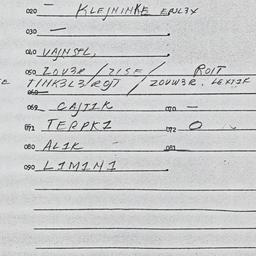 020 — KLEJNINKE ERNL3X
030 —
040 VAJNSPL,
050 ZOV3R / ZISE / ROIT
TINK3L3/ROJT / ZOUW3R. LEXTIK
060
069 CAJTIK 070 —
071 TERPKI 072 O
080 ALIK — 081
090 LIMINI